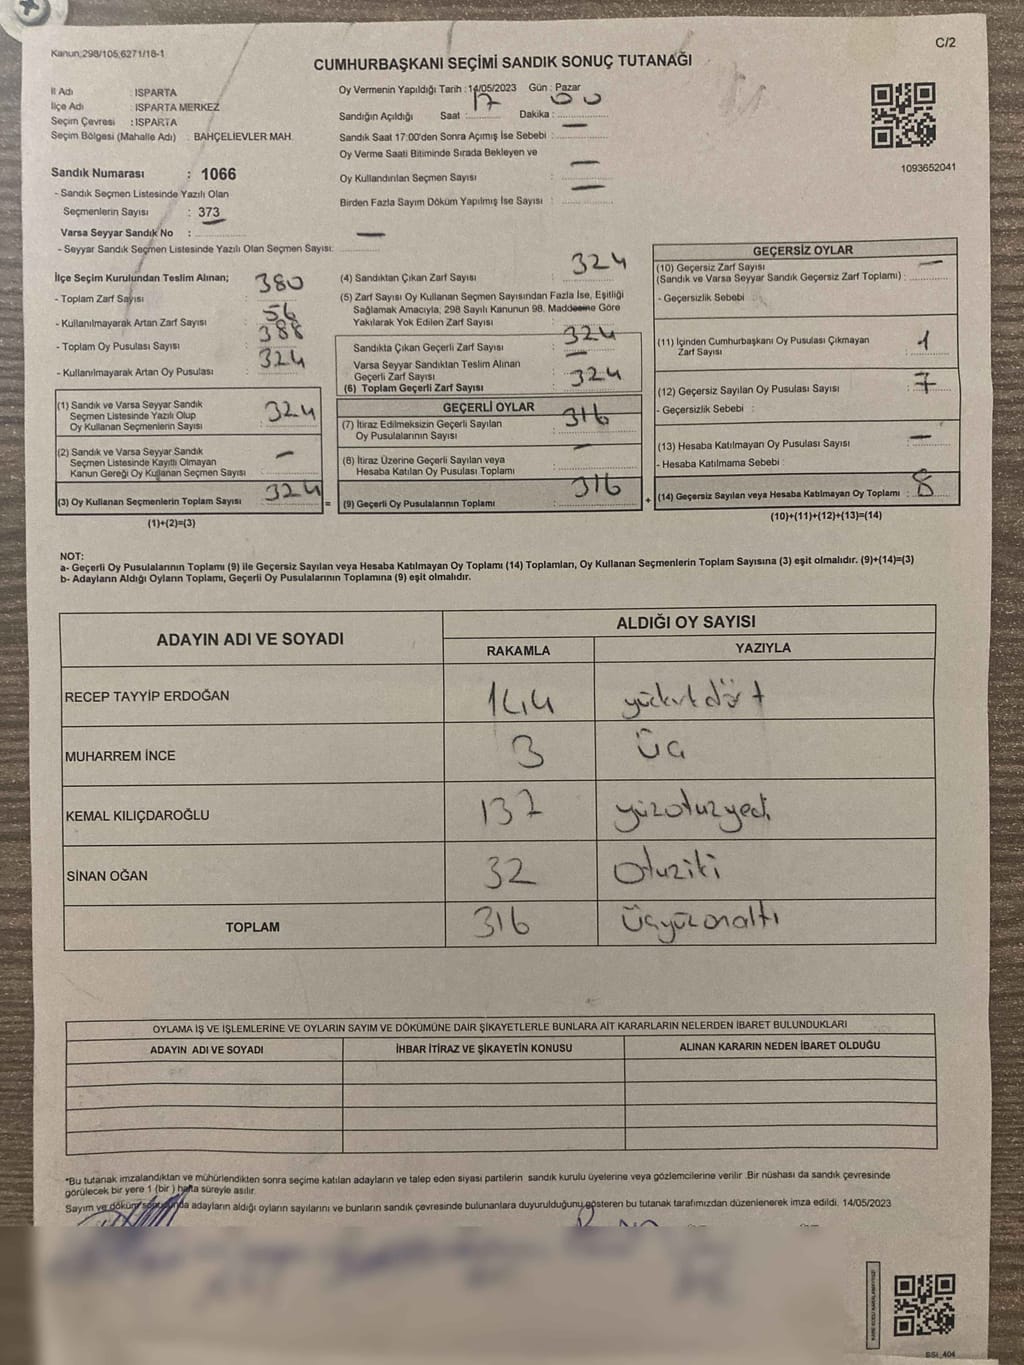 Kanun:298/105,6271/18-1
C/2
CUMHURBAŞKANI SEÇİMİ SANDIK SONUÇ TUTANAĞI
İl Adı : ISPARTA
İlçe Adı : ISPARTA MERKEZ
Seçim Çevresi : ISPARTA
Seçim Bölgesi (Mahalle Adı) : BAHÇELİEVLER MAH.
Sandık Numarası : 1066
- Sandık Seçmen Listesinde Yazılı Olan
Seçmenlerin Sayısı : 373
Varsa Seyyar Sandık No : —
- Seyyar Sandık Seçmen Listesinde Yazılı Olan Seçmen Sayısı:
Oy Vermenin Yapıldığı Tarih : 14/05/2023 Gün : Pazar
Sandığın Açıldığı Saat : 17 Dakika : 00
Sandık Saat 17:00'den Sonra Açımış İse Sebebi : —
Oy Verme Saati Bitiminde Sırada Bekleyen ve
Oy Kullandırılan Seçmen Sayısı : —
Birden Fazla Sayım Döküm Yapılmış İse Sayısı : —
1093652041
İlçe Seçim Kurulundan Teslim Alınan;
- Toplam Zarf Sayısı : 380
- Kullanılmayarak Artan Zarf Sayısı : 56
- Toplam Oy Pusulası Sayısı : 388
- Kullanılmayarak Artan Oy Pusulası : 324
(1) Sandık ve Varsa Seyyar Sandık
Seçmen Listesinde Yazılı Olup
Oy Kullanan Seçmenlerin Sayısı : 324
(2) Sandık ve Varsa Seyyar Sandık
Seçmen Listesinde Kayıtlı Olmayan
Kanun Gereği Oy Kullanan Seçmen Sayısı : —
(3) Oy Kullanan Seçmenlerin Toplam Sayısı : 324
(1)+(2)=(3)
(4) Sandıktan Çıkan Zarf Sayısı : 324
(5) Zarf Sayısı Oy Kullanan Seçmen Sayısından Fazla İse, Eşitliği
Sağlamak Amacıyla, 298 Sayılı Kanunun 98. Maddesine Göre
Yakılarak Yok Edilen Zarf Sayısı :
Sandıkta Çıkan Geçerli Zarf Sayısı : 324
Varsa Seyyar Sandıktan Teslim Alınan
Geçerli Zarf Sayısı : —
(6) Toplam Geçerli Zarf Sayısı : 324
=
GEÇERLİ OYLAR
(7) İtiraz Edilmeksizin Geçerli Sayılan
Oy Pusulalarının Sayısı : 316
(8) İtiraz Üzerine Geçerli Sayılan veya
Hesaba Katılan Oy Pusulası Toplamı : —
(9) Geçerli Oy Pusulalarının Toplamı : 316
+
GEÇERSİZ OYLAR
(10) Geçersiz Zarf Sayısı
(Sandık ve Varsa Seyyar Sandık Geçersiz Zarf Toplamı) : —
- Geçersizlik Sebebi :
(11) İçinden Cumhurbaşkanı Oy Pusulası Çıkmayan
Zarf Sayısı : 1
(12) Geçersiz Sayılan Oy Pusulası Sayısı : 7
- Geçersizlik Sebebi :
(13) Hesaba Katılmayan Oy Pusulası Sayısı : —
- Hesaba Katılmama Sebebi :
(14) Geçersiz Sayılan veya Hesaba Katılmayan Oy Toplamı : 8
(10)+(11)+(12)+(13)=(14)
NOT:
a- Geçerli Oy Pusulalarının Toplamı (9) ile Geçersiz Sayılan veya Hesaba Katılmayan Oy Toplamı (14) Toplamları, Oy Kullanan Seçmenlerin Toplam Sayısına (3) eşit olmalıdır. (9)+(14)=(3)
b- Adayların Aldığı Oyların Toplamı, Geçerli Oy Pusulalarının Toplamına (9) eşit olmalıdır.
ADAYIN ADI VE SOYADI
ALDIĞI OY SAYISI
RAKAMLA YAZIYLA
RECEP TAYYİP ERDOĞAN 144 yüzkırkdört
MUHARREM İNCE 3 üç
KEMAL KILIÇDAROĞLU 137 yüzotuzyedi
SİNAN OĞAN 32 otuziki
TOPLAM 316 üçyüzonaltı
OYLAMA İŞ VE İŞLEMLERİNE VE OYLARIN SAYIM VE DÖKÜMÜNE DAİR ŞİKAYETLERLE BUNLARA AİT KARARLARIN NELERDEN İBARET BULUNDUKLARI
ADAYIN ADI VE SOYADI İHBAR İTİRAZ VE ŞİKAYETİN KONUSU ALINAN KARARIN NEDEN İBARET OLDUĞU
*Bu tutanak imzalandıktan ve mühürlendikten sonra seçime katılan adayların ve talep eden siyasi partilerin sandık kurulu üyelerine veya gözlemcilerine verilir. Bir nüshası da sandık çevresinde
görülecek bir yere 1 (bir) hafta süreyle asılır.
Sayım ve döküm sonucunda adayların aldığı oyların sayılarını ve bunların sandık çevresinde bulunanlara duyurulduğunu gösteren bu tutanak tarafımızdan düzenlenerek imza edildi. 14/05/2023
SSİ_404